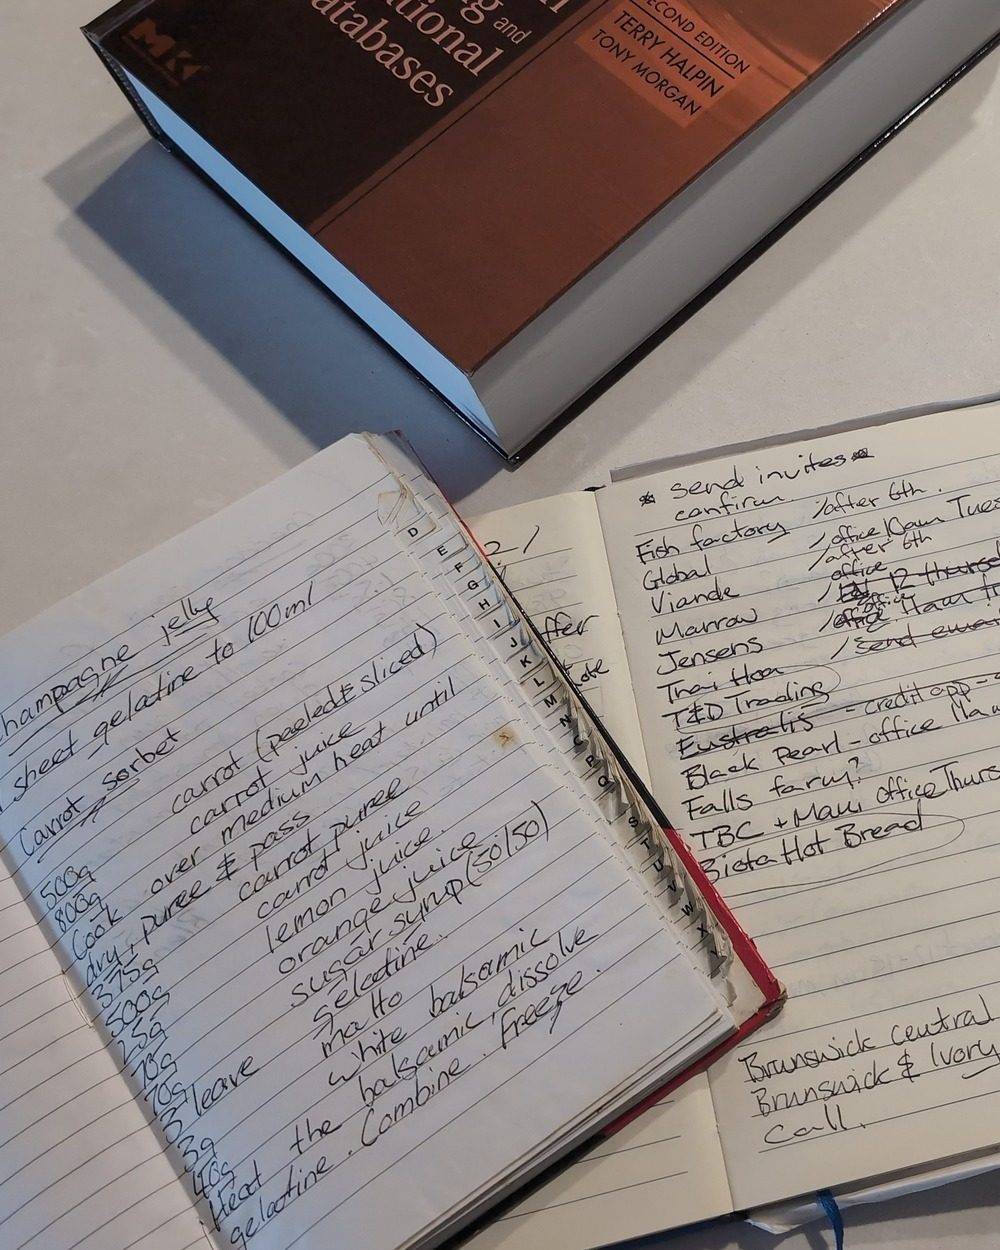 MK
and
tional
atabases
SECOND EDITION
TERRY HALPIN
TONY MORGAN
D
E
F
G
H
I
J
K
L
M
N
Q
S
T
U
V
W
X
hampagne jelly
sheet gelatine to 100ml
Carrot sorbet
500g carrot (peeled & sliced)
800g carrot juice
Cook over medium heat until
dry, puree & pass
375g carrot puree
500g carrot juice
25g lemon juice.
70g orange juice
70g sugar syrup (50/50)
3 leave gelatine.
3g malto
40g white balsamic
Heat the balsamic, dissolve
gelatine. Combine. Freeze.
2/
ffer
* send invites *
confirm
Fish factory /after 6th.
Global /office 10am Tues
Viande /after 6th
Marrow office 12 thursd
Jensens office 11am
Thai Hoa / send email
T&D Trading
Eustralis - credit app -
Black Pearl - office 11am
Falls farm?
TBC + Maui office Thurs
Biota Hot Bread
Brunswick central
Brunswick & Ivory
call.